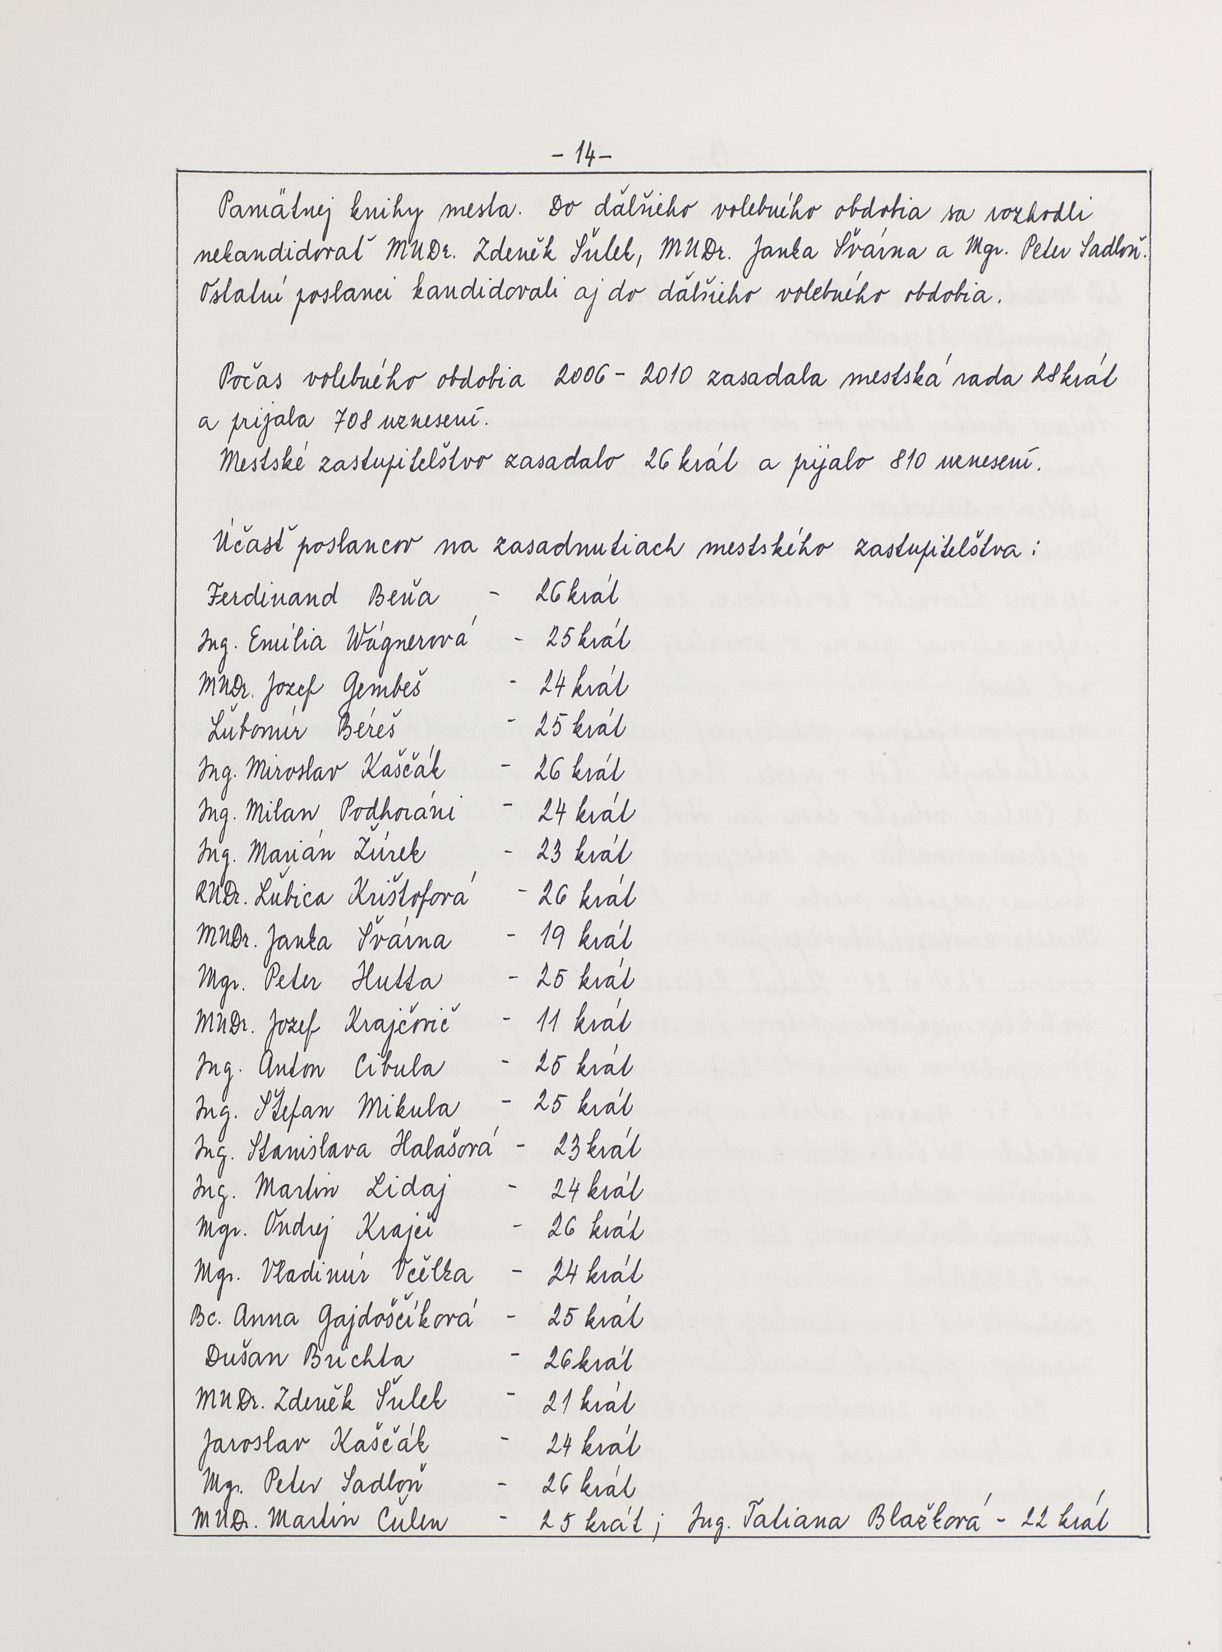 - 14 -
Pamätnej knihy mesta. Do ďalšieho volebného obdobia sa rozhodli
nekandidovať MUDr. Zdeněk Šulek, MUDr. Janka Švárna a Mgr. Peter Sadloň.
Ostatní poslanci kandidovali aj do ďalšieho volebného obdobia.
Počas volebného obdobia 2006 - 2010 zasadala mestská rada 28 krát
a prijala 708 uznesení.
Mestské zastupiteľstvo zasadalo 26 krát a prijalo 810 uznesení.
Účasť poslancov na zasadnutiach mestského zastupiteľstva :
Ferdinand Beňa - 26 krát
Ing. Emília Wágnerová - 25 krát
MUDr. Jozef Gembeš - 24 krát
Ľubomír Béreš - 25 krát
Ing. Miroslav Kaščák - 26 krát
Ing. Milan Podhoráni - 24 krát
Ing. Marián Žúrek - 23 krát
RNDr. Ľubica Krištofová - 26 krát
MUDr. Janka Švárna - 19 krát
Mgr. Peter Hutta - 25 krát
MUDr. Jozef Krajčovič - 11 krát
Ing. Anton Cibula - 25 krát
Ing. Štefan Mikula - 25 krát
Ing. Stanislava Halašová - 23 krát
Ing. Martin Lidaj - 24 krát
Mgr. Ondrej Krajči - 26 krát
Mgr. Vladimír Včelka - 24 krát
Bc. Anna Gajdoščíková - 25 krát
Dušan Buchta - 26 krát
MUDr. Zdeněk Šulek - 21 krát
Jaroslav Kaščák - 24 krát
Mgr. Peter Sadloň - 26 krát
MUDr. Martin Čulen - 25 krát ; Ing. Tatiana Blažková - 22 krát